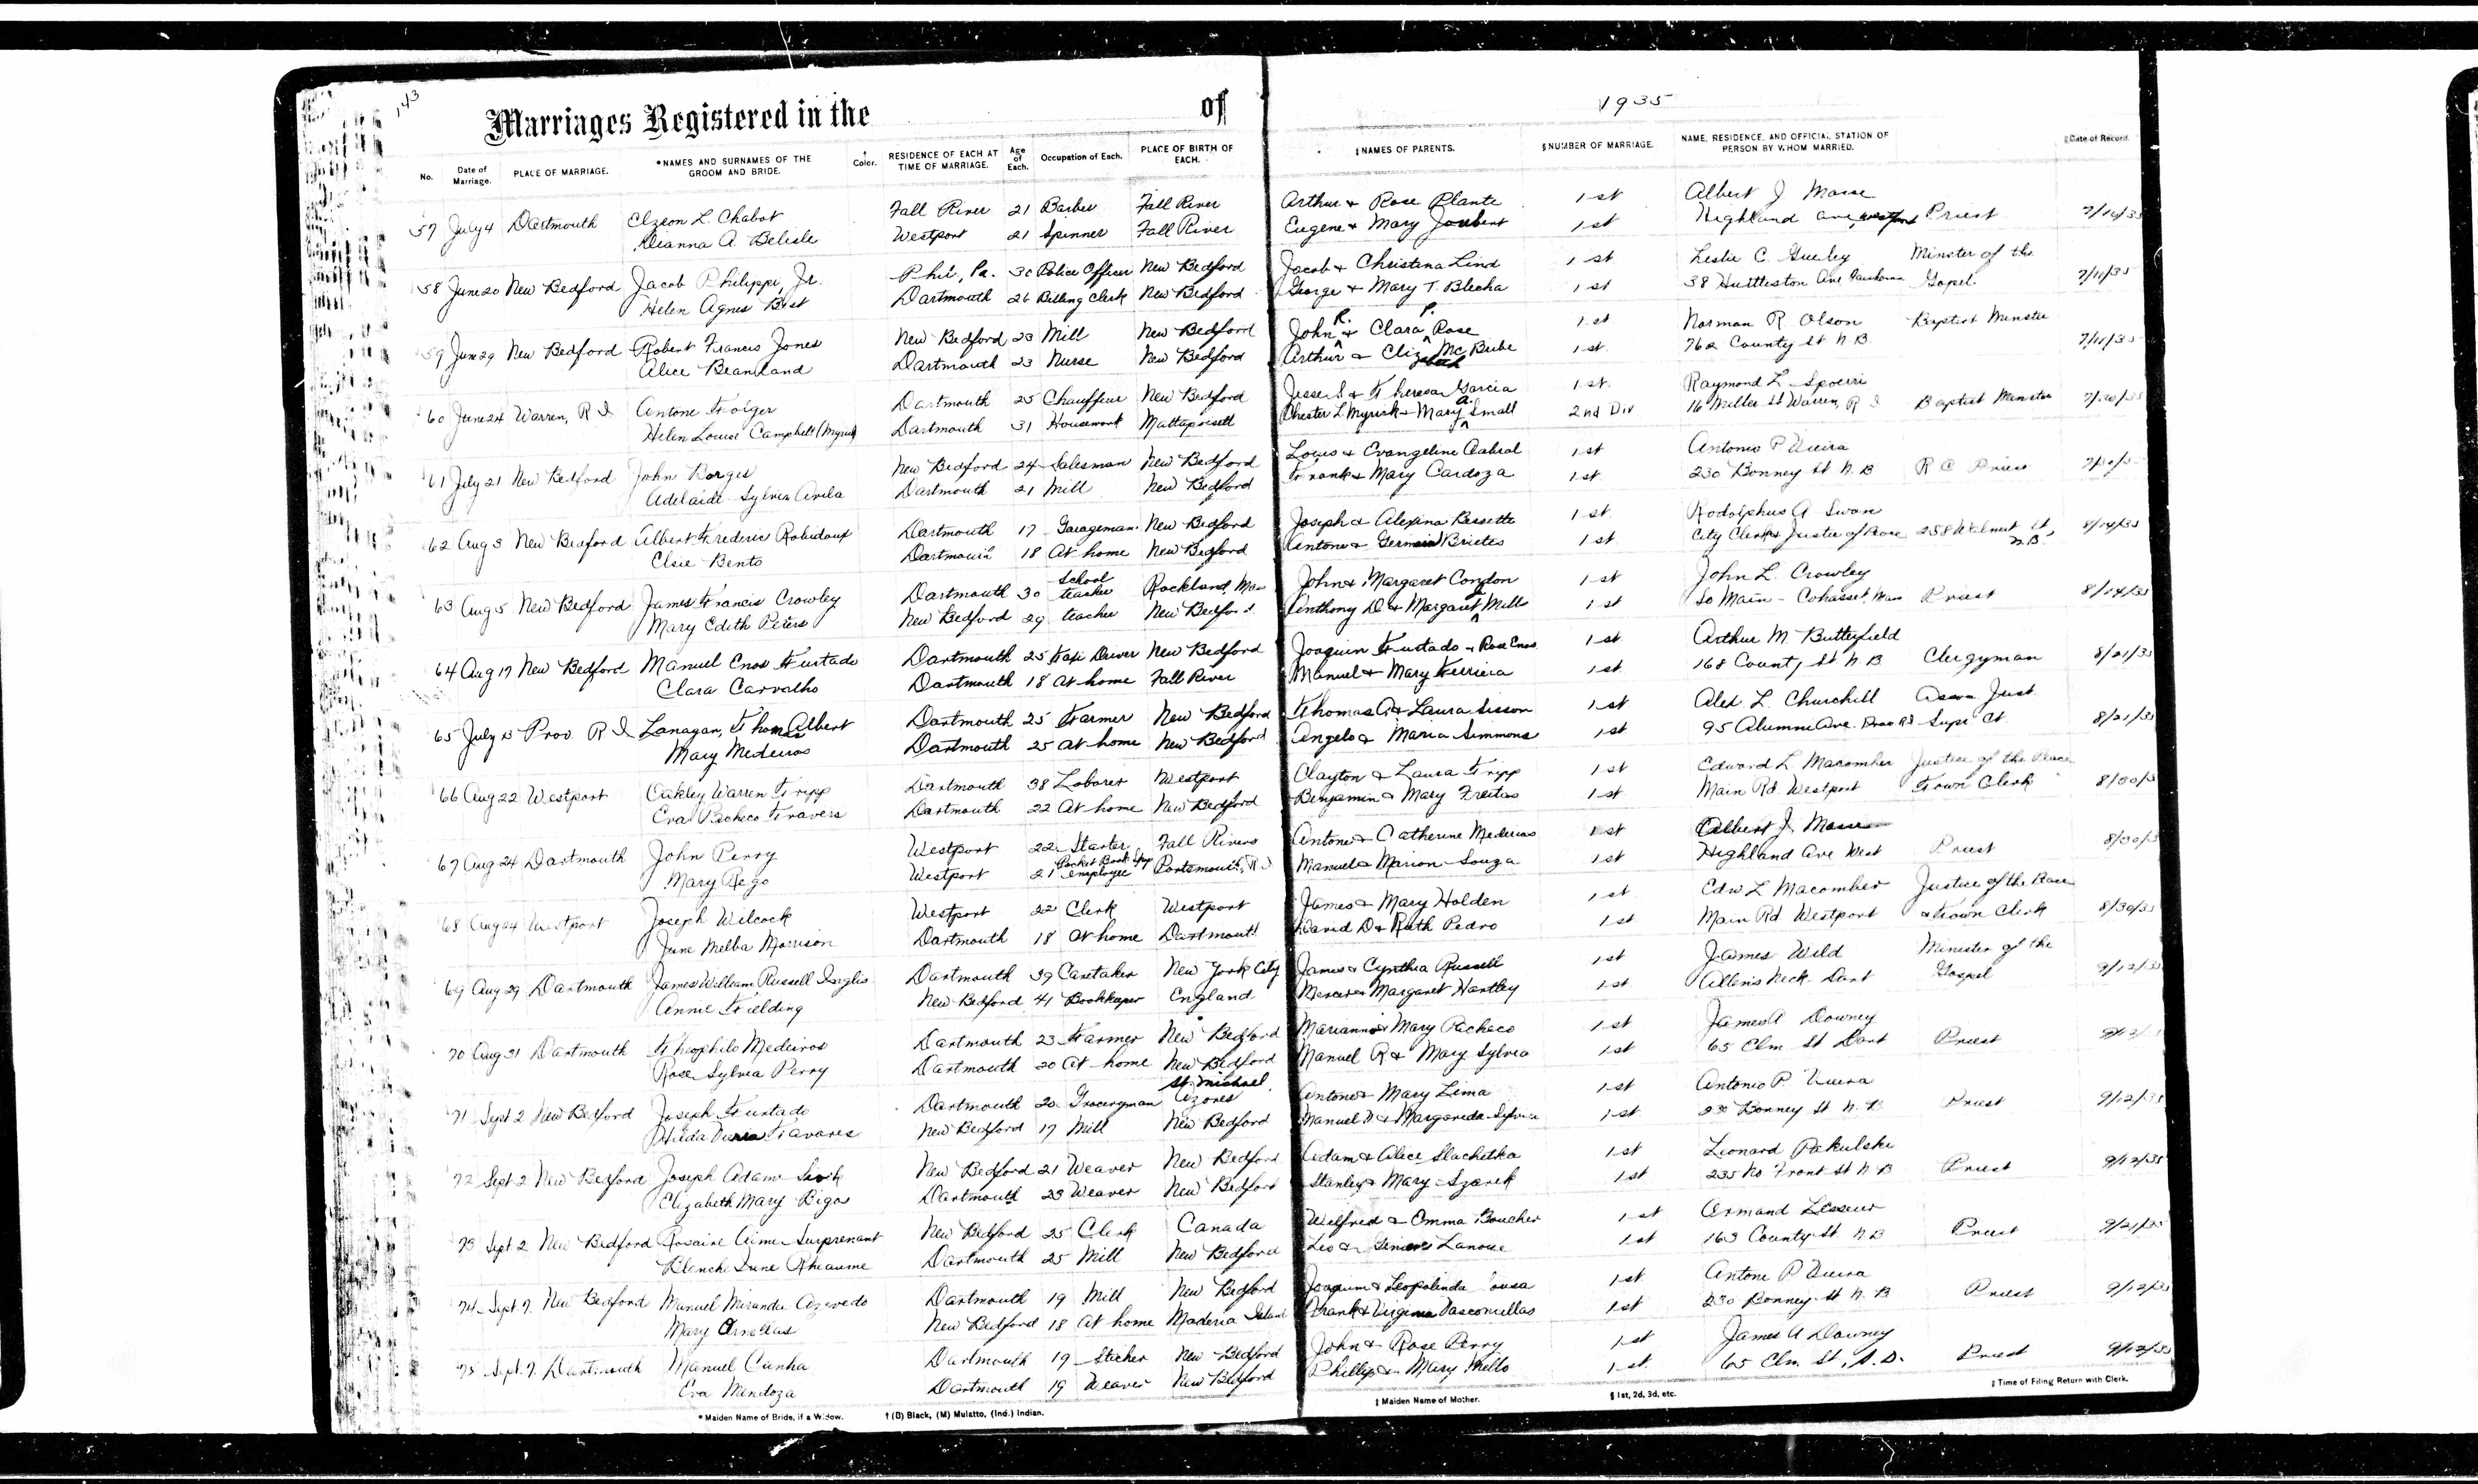 143
Marriages Registered in the of
1935
No. Date of Marriage. PLACE OF MARRIAGE. *NAMES AND SURNAMES OF THE GROOM AND BRIDE. † Color. RESIDENCE OF EACH AT TIME OF MARRIAGE. Age of Each. Occupation of Each. PLACE OF BIRTH OF EACH. ‡NAMES OF PARENTS. §NUMBER OF MARRIAGE. NAME, RESIDENCE, AND OFFICIAL STATION OF PERSON BY WHOM MARRIED. ‖Date of Record.
57 July 4 Dartmouth Elzeon L. Chabot Fall River 21 Barber Fall River Arthur & Rose Plante 1st Albert J Masse
Deanna A. Belisle Westport 21 Spinner Fall River Eugene & Mary Joubert 1st Highland Ave, Westport Priest
58 June 20 New Bedford Jacob Philippi, Jr. Phil, Pa. 30 Police Officer New Bedford Jacob & Christina Lind 1st Leslie C. Minster of the
Helen Agnes Best Dartmouth 26 Billing Clerk New Bedford George & Mary T. Blecha 1st 38 Huttleston Ave Gospel 7/11/35
59 June 29 New Bedford Robert Francis Jones New Bedford 23 Mill New Bedford John R. & Clara P. Rose 1st Norman R Olson Baptist Minster
Alice Beanland Dartmouth 23 Nurse New Bedford Arthur & Elizabeth Mc Bube 1st 762 County St N B 7/11/35
60 June 24 Warren, R I Antone Folger Dartmouth 25 Chauffeur New Bedford Jesse S & Theresa Garcia 1st Raymond L
Helen Louise Campbell (Myrick) Dartmouth 31 Housework Mattapoisett Chester L Myrick & Mary A. Small 2nd Div 16 Miller St Warren, R I Baptist Minster
61 July 21 New Bedford John Borges New Bedford 24 Salesman New Bedford Louis & Evangeline Cabral 1st Antonio P Vieira
Adelaide Sylvia Avila Dartmouth 21 Mill New Bedford Frank & Mary Cardoza 1st 230 Bonney St N B R C Priest
62 Aug 3 New Bedford Albert Frederic Robidoux Dartmouth 17 Garageman New Bedford Joseph & Alexina Bessette 1st Rodolphus A Swan
Elsie Bento Dartmouth 18 At home New Bedford Antone & Brietes 1st City Clerk & Justice of Peace 258 Walnut St, N.B. 8/14/35
63 Aug 5 New Bedford James Francis Crowley Dartmouth 30 School teacher Rockland, Mass John & Margaret Condon 1st John L. Crowley
Mary Edith Peters New Bedford 29 teacher New Bedford Anthony D & Margaret Mills 1st So Main - Cohasset, Mass Priest 8/14/35
64 Aug 17 New Bedford Manuel Enos Furtado Dartmouth 25 Taxi Driver New Bedford Joaquin Furtado & Rose Enos 1st Arthur M Butterfield
Clara Carvalho Dartmouth 18 At home Fall River Manuel & Mary Ferrieia 1st 168 County St N B Clergyman 8/21/35
65 July Prov. R I Lanagan, Thomas Albert Dartmouth 25 Farmer New Bedford Thomas A & Laura Sisson 1st Alex L. Churchill Asso Just.
Mary Medeiros Dartmouth 25 at home New Bedford Angelo & Maria Simmons 1st 95 Alumni Ave. Prov R I Supr Ct. 8/21/35
66 Aug 22 Westport Oakley Warren Tripp Dartmouth 38 Laborer Westport Clayton & Laura Tripp 1st Edward L Macomber Justice of the Peace
Eva Pacheco Travers Dartmouth 22 At home New Bedford Benjamin & Mary Freitas 1st Main Rd Westport Town Clerk
67 Aug 24 Dartmouth John Perry Westport 22 Starter Fall River Antone & Catherine Mederios 1st Albert J Masse
Mary Rego Westport 21 Pocket Book Shop employee Portsmouth, R I Manuel & Marion Souza 1st Highland Ave West Priest
68 Aug 24 Westport Joseph Wilcock Westport 22 Clerk Westport James & Mary Holden 1st Edw L Macomber Justice of the Peace
June Melba Morrison Dartmouth 18 At home Dartmouth David D & Ruth Pedro 1st Main Rd Westport & Town Clerk 8/30/35
69 Aug 29 Dartmouth James William Russell Inglis Dartmouth 39 Caretaker New York City James & Cynthia Russell 1st James Wild Minister of the
Annie Fielding New Bedford 41 Bookkeper England Mercer & Margaret Hartley 1st Allens Neck Dart Gospel 9/12/35
70 Aug 31 Dartmouth Theophilo Medeiros Dartmouth 23 Farmer New Bedford Marianno & Mary Pacheco 1st James A Downey
Rose Sylvia Perry Dartmouth 20 At home New Bedford Manuel R & Mary Sylvia 1st 65 Elm St Dart Priest
71 Sept 2 New Bedford Joseph Furtado Dartmouth 20 Groceryman St. Michael, Azores Antone & Mary Lima 1st Antonio P. Vieira
Hilda Tavares New Bedford 17 Mill New Bedford Manuel D & Margareda Sylvia 1st 230 Bonney St N. B Priest 9/12/35
72 Sept 2 New Bedford Joseph Adam New Bedford 21 Weaver New Bedford Adam & Alice Slachetka 1st Leonard Pakulski
Elizabeth Mary Bigos Dartmouth 23 Weaver New Bedford Stanley & Mary Szarek 1st 235 No Front St N B Priest 9/12/35
73 Sept 2 New Bedford Rosaire Aime Surprenant New Bedford 25 Clerk Canada Wilfred & Emma Boucher 1st Armand Lesseur
Blanche Irene Rheaume Dartmouth 25 Mill New Bedford Leo & Lanoue 1st 163 County St N B Priest 9/21/35
74 Sept. 7. New Bedford Manuel Miranda Azevedo Dartmouth 19 Mill New Bedford Joaquim & Leopolinda Sousa 1st Antone P Vieira
Mary Ornellas New Bedford 18 At home Maderia Island Frank & Virginia Vasconcellos 1st 230 Bonney St N. B Priest 9/12/35
75 Sept. 7. Dartmouth Manuel Cunha Dartmouth 19 Sticher New Bedford John & Rose Perry 1st James A Downey
Eva Mendoza Dartmouth 19 Weaver New Bedford Phillip & Mary Mello 1st. 65 Elm St, S.D. Priest 9/12/35
* Maiden Name of Bride, if a Widow. † (B) Black, (M) Mulatto, (Ind.) Indian. ‡ Maiden Name of Mother. § 1st, 2d, 3d, etc. ‖ Time of Filing Return with Clerk.